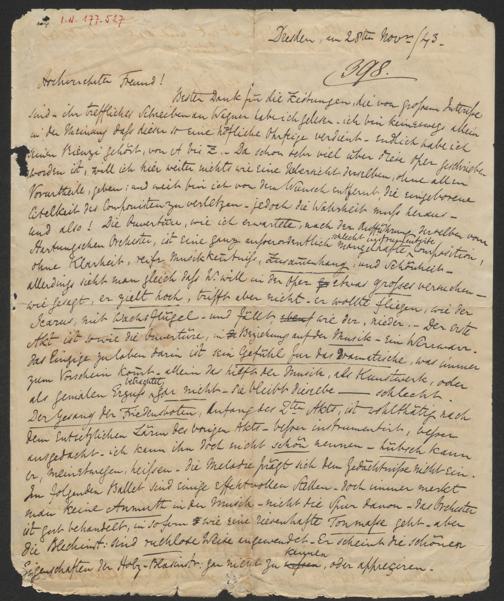 I.N. 177.527
Dresden, am 28ten Novr/43.
398.
Hochverehrter Freund!
Besten Dank für die Zeitungen, die von großem Interesse
sind - ihr treffliches Schreiben an Wagner habe ich gelesen - ich bin keineswegs allein
in der Meinung daß dieser so eine höfliche Ohrfeige verdient - endlich habe ich
seinen Rienzi gehört, von A bis Z. - Da schon sehr viel über diese Oper geschrieben
worden ist, will ich hier weiter nichts wie eine Uebersicht derselben, ohne allem
Vorurtheile, geben; und weit bin ich von dem Wunsch entfernt, die eingeborene
Eitelkeit des Componisten zu verletzen - jedoch die Wahrheit muß heraus -
und also! Die Ouvertüre, wie ich erwartete, nach der Aufführung derselben vom
Hartungschen Orchester, ist eine ganz außerordentlich schlecht instrumentirte mangelhafte Composition!
ohne Klarheit, reife Musikkentniß, Zusammenhang, und Schönheit -
allerdings sieht man gleich daß W. will in der Oper etwas großes versuchen -
wie gesagt, er zielt hoch, trifft aber nicht - er wollte fliegen, wie der
Icarus, mit Wachsflügel - und fällt wie der, nieder. - Der erste
Akt ist so wie die Ouvertüre, in Beziehung auf der Musik - ein Wirrwarr.
Das Einzige zu loben darin ist sein Gefühl für das Dramatische, was immer
zum Vorschein komt - allein das hilft der Musik, als Kunstwerk, oder
als genialen Erguß betrachtet, gar nicht - die bleibt dieselbe — schlecht.
Der Gesang der Friedensboten, Anfang des 2ten Akts, ist wohlthätig nach
dem entsetzlichen Lärm des vorigen Akts - besser instrumentirt, besser
ausgedacht - ich kann ihn doch nicht schön nennen - hübsch kann
er, meinetwegen, heißen - die Melodie prägt sich dem Gedächtniße nicht ein.
Im folgenden Ballet sind einige effektvollen Stellen - doch immer merkt
man keine Anmuth in der Musik - nicht die Spur davon - Das Orchester
ist grob behandelt, in sofern wie eine riesenhafte Tonmaße geht - aber
die Blechinst: sind ruchlose Weise angewendet - Er scheint die schönen
Eigenschaften der Holz-Blasinstr: gar nicht zu kennen, oder appreciren.